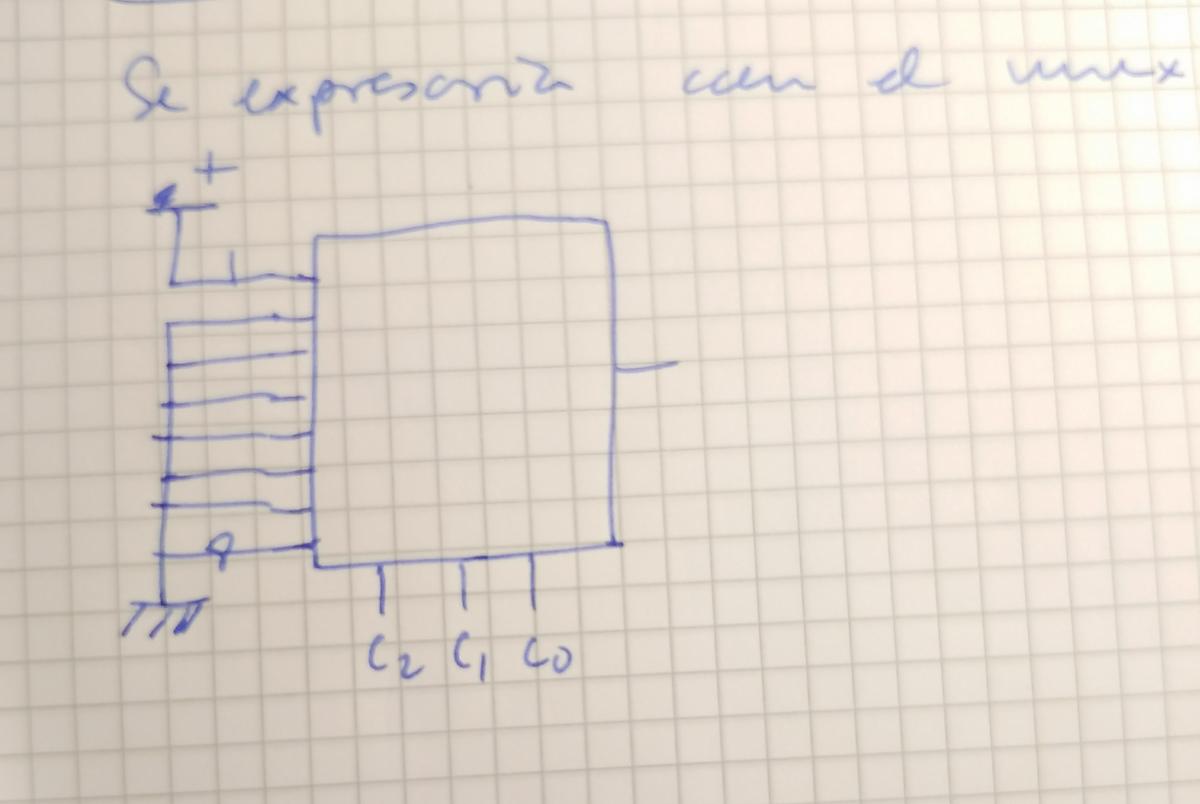 Se expresaría con el mux
+
1
C2 C1 C0